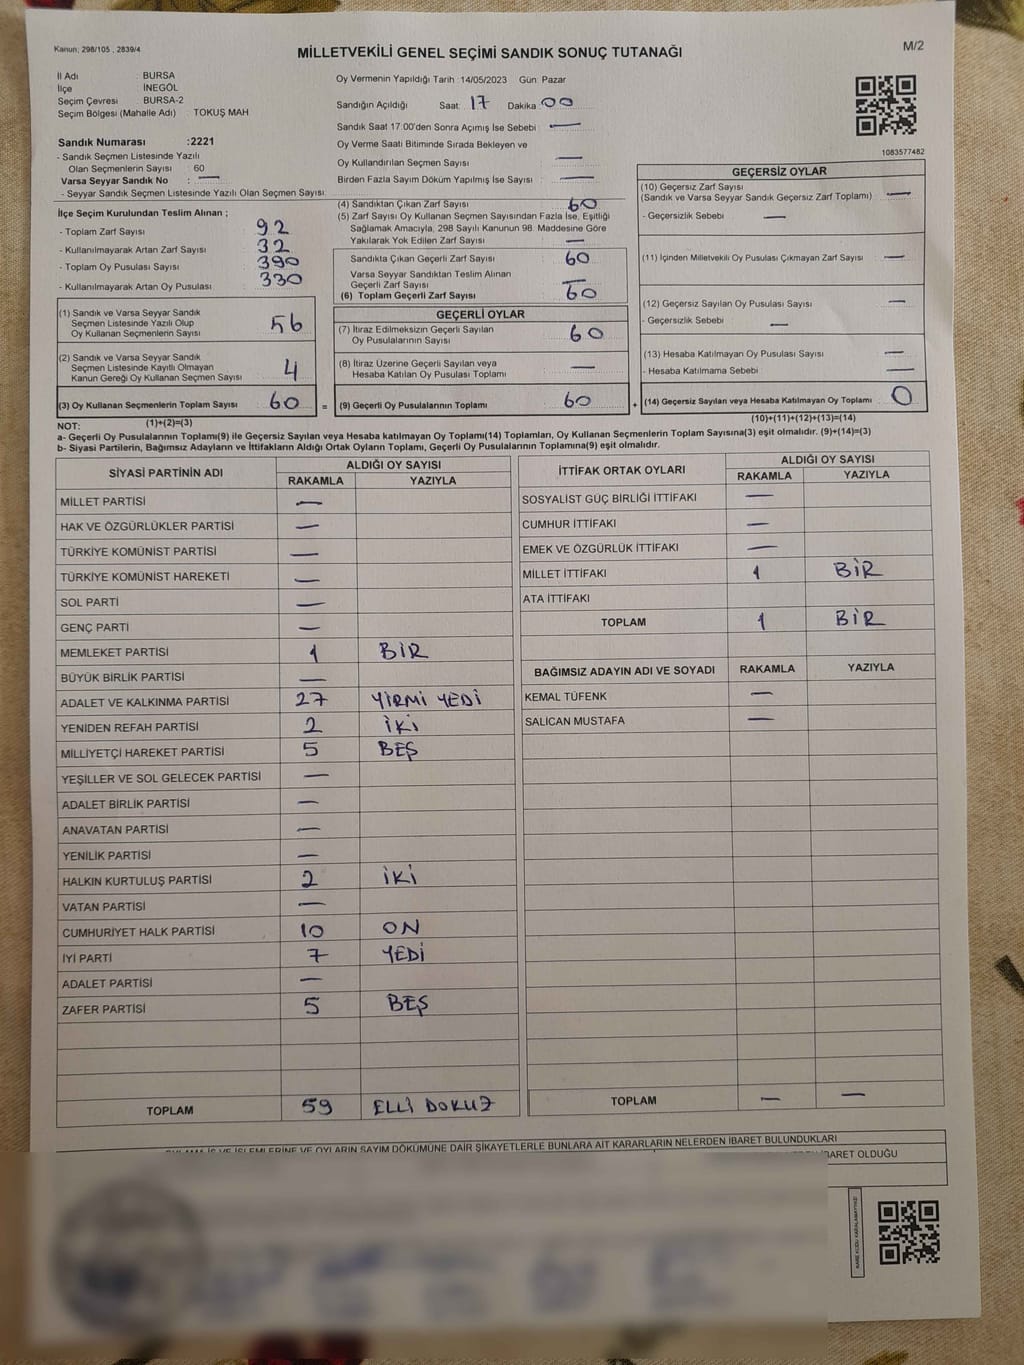 Kanun; 298/105 , 2839/4
MİLLETVEKİLİ GENEL SEÇİMİ SANDIK SONUÇ TUTANAĞI
M/2
İl Adı : BURSA
İlçe : İNEGÖL
Seçim Çevresi : BURSA-2
Seçim Bölgesi (Mahalle Adı) : TOKUŞ MAH
Oy Vermenin Yapıldığı Tarih :14/05/2023 Gün: Pazar
Sandığın Açıldığı Saat: 17 Dakika: 00
Sandık Saat 17:00'den Sonra Açımış İse Sebebi : —
Oy Verme Saati Bitiminde Sırada Bekleyen ve
Oy Kullandırılan Seçmen Sayısı : —
Birden Fazla Sayım Döküm Yapılmış İse Sayısı : —
1083577482
Sandık Numarası :2221
- Sandık Seçmen Listesinde Yazılı
Olan Seçmenlerin Sayısı : 60
Varsa Seyyar Sandık No : —
- Seyyar Sandık Seçmen Listesinde Yazılı Olan Seçmen Sayısı:
İlçe Seçim Kurulundan Teslim Alınan ;
- Toplam Zarf Sayısı : 92
- Kullanılmayarak Artan Zarf Sayısı : 32
- Toplam Oy Pusulası Sayısı : 390
- Kullanılmayarak Artan Oy Pusulası : 330
(1) Sandık ve Varsa Seyyar Sandık
Seçmen Listesinde Yazılı Olup
Oy Kullanan Seçmenlerin Sayısı : 56
(2) Sandık ve Varsa Seyyar Sandık
Seçmen Listesinde Kayıtlı Olmayan
Kanun Gereği Oy Kullanan Seçmen Sayısı : 4
(3) Oy Kullanan Seçmenlerin Toplam Sayısı : 60 =
(1)+(2)=(3)
(4) Sandıktan Çıkan Zarf Sayısı : 60
(5) Zarf Sayısı Oy Kullanan Seçmen Sayısından Fazla İse, Eşitliği
Sağlamak Amacıyla, 298 Sayılı Kanunun 98. Maddesine Göre
Yakılarak Yok Edilen Zarf Sayısı : —
Sandıkta Çıkan Geçerli Zarf Sayısı : 60
Varsa Seyyar Sandıktan Teslim Alınan
Geçerli Zarf Sayısı : —
(6) Toplam Geçerli Zarf Sayısı : 60
GEÇERLİ OYLAR
(7) İtiraz Edilmeksizin Geçerli Sayılan
Oy Pusulalarının Sayısı : 60
(8) İtiraz Üzerine Geçerli Sayılan veya
Hesaba Katılan Oy Pusulası Toplamı : —
(9) Geçerli Oy Pusulalarının Toplamı : 60 +
GEÇERSİZ OYLAR
(10) Geçersiz Zarf Sayısı
(Sandık ve Varsa Seyyar Sandık Geçersiz Zarf Toplamı) : —
- Geçersizlik Sebebi : —
(11) İçinden Milletvekili Oy Pusulası Çıkmayan Zarf Sayısı : —
(12) Geçersiz Sayılan Oy Pusulası Sayısı : —
- Geçersizlik Sebebi : —
(13) Hesaba Katılmayan Oy Pusulası Sayısı : —
- Hesaba Katılmama Sebebi : —
(14) Geçersiz Sayılan veya Hesaba Katılmayan Oy Toplamı : 0
(10)+(11)+(12)+(13)=(14)
NOT:
a- Geçerli Oy Pusulalarının Toplamı(9) ile Geçersiz Sayılan veya Hesaba katılmayan Oy Toplamı(14) Toplamları, Oy Kullanan Seçmenlerin Toplam Sayısına(3) eşit olmalıdır. (9)+(14)=(3)
b- Siyasi Partilerin, Bağımsız Adayların ve İttifakların Aldığı Ortak Oyların Toplamı, Geçerli Oy Pusulalarının Toplamına(9) eşit olmalıdır.
SİYASİ PARTİNİN ADI ALDIĞI OY SAYISI
RAKAMLA YAZIYLA
MİLLET PARTİSİ —
HAK VE ÖZGÜRLÜKLER PARTİSİ —
TÜRKİYE KOMÜNİST PARTİSİ —
TÜRKİYE KOMÜNİST HAREKETİ —
SOL PARTİ —
GENÇ PARTİ —
MEMLEKET PARTİSİ 1 BİR
BÜYÜK BİRLİK PARTİSİ —
ADALET VE KALKINMA PARTİSİ 27 YİRMİ YEDİ
YENİDEN REFAH PARTİSİ 2 İKİ
MİLLİYETÇİ HAREKET PARTİSİ 5 BEŞ
YEŞİLLER VE SOL GELECEK PARTİSİ —
ADALET BİRLİK PARTİSİ —
ANAVATAN PARTİSİ —
YENİLİK PARTİSİ —
HALKIN KURTULUŞ PARTİSİ 2 İKİ
VATAN PARTİSİ —
CUMHURİYET HALK PARTİSİ 10 ON
İYİ PARTİ 7 YEDİ
ADALET PARTİSİ —
ZAFER PARTİSİ 5 BEŞ
TOPLAM 59 ELLİ DOKUZ
İTTİFAK ORTAK OYLARI ALDIĞI OY SAYISI
RAKAMLA YAZIYLA
SOSYALİST GÜÇ BİRLİĞİ İTTİFAKI —
CUMHUR İTTİFAKI —
EMEK VE ÖZGÜRLÜK İTTİFAKI —
MİLLET İTTİFAKI 1 BİR
ATA İTTİFAKI
TOPLAM 1 BİR
BAĞIMSIZ ADAYIN ADI VE SOYADI RAKAMLA YAZIYLA
KEMAL TÜFENK —
SALİCAN MUSTAFA —
TOPLAM — —
İŞLEMLERİNE VE OYLARIN SAYIM DÖKÜMÜNE DAİR ŞİKAYETLERLE BUNLARA AİT KARARLARIN NELERDEN İBARET BULUNDUKLARI
İBARET OLDUĞU
KARE KODU KARALAMAYINIZ!